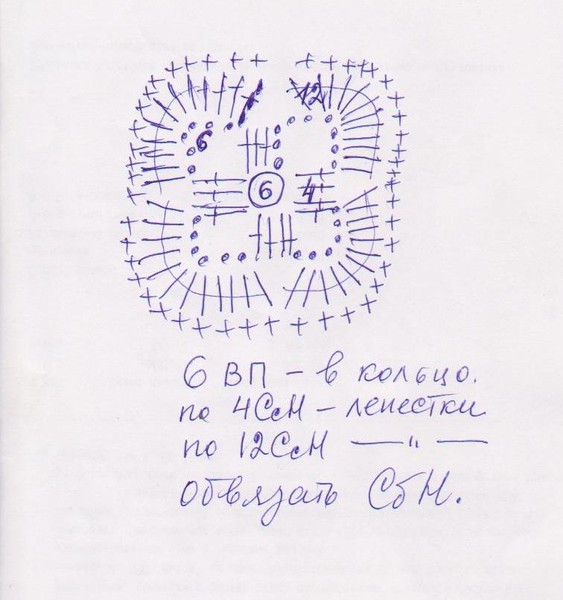 12
6
6
4
6 ВП – в кольцо.
по 4СсН – лепестки
по 12СсН —— " ——
Обвязать СбН.